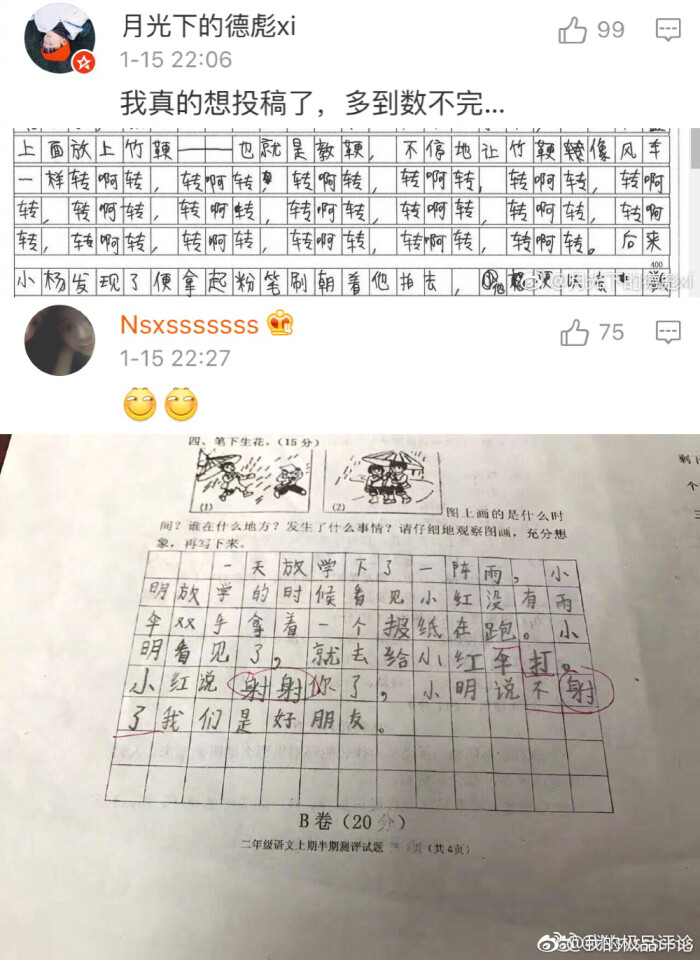 月光下的德彪xi
99
1-15 22:06
我真的想投稿了，多到数不完...
上面放上竹鞭——也就是教鞭，不停地让竹鞭像风车
一样转啊转，转啊转，转啊转，转啊转，转啊转，转啊
转，转啊转，转啊转，转啊转，转啊转，转啊转，转啊
转，转啊转，转啊转，转啊转，转啊转，转啊转。后来
400
小杨发现了便拿起粉笔刷朝着他拍去，
月光下的德彪xi
Nsxsssssss
75
1-15 22:27
四、笔下生花。(15分)
(1)
(2)
图上画的是什么时
间？谁在什么地方？发生了什么事情？请仔细地观察图画，充分想
象，再写下来。
一天放学下了一阵雨，小
明放学的时候看见小红没有雨
伞xx手拿着一个报纸在跑。小
明看见了，就去给小红伞打。
小红说射射你了，小明说不射
了我们是好朋友。
B卷(20分)
二年级语文上期半期测评试题
页(共4页)
剩
个
三
@我的极品评论